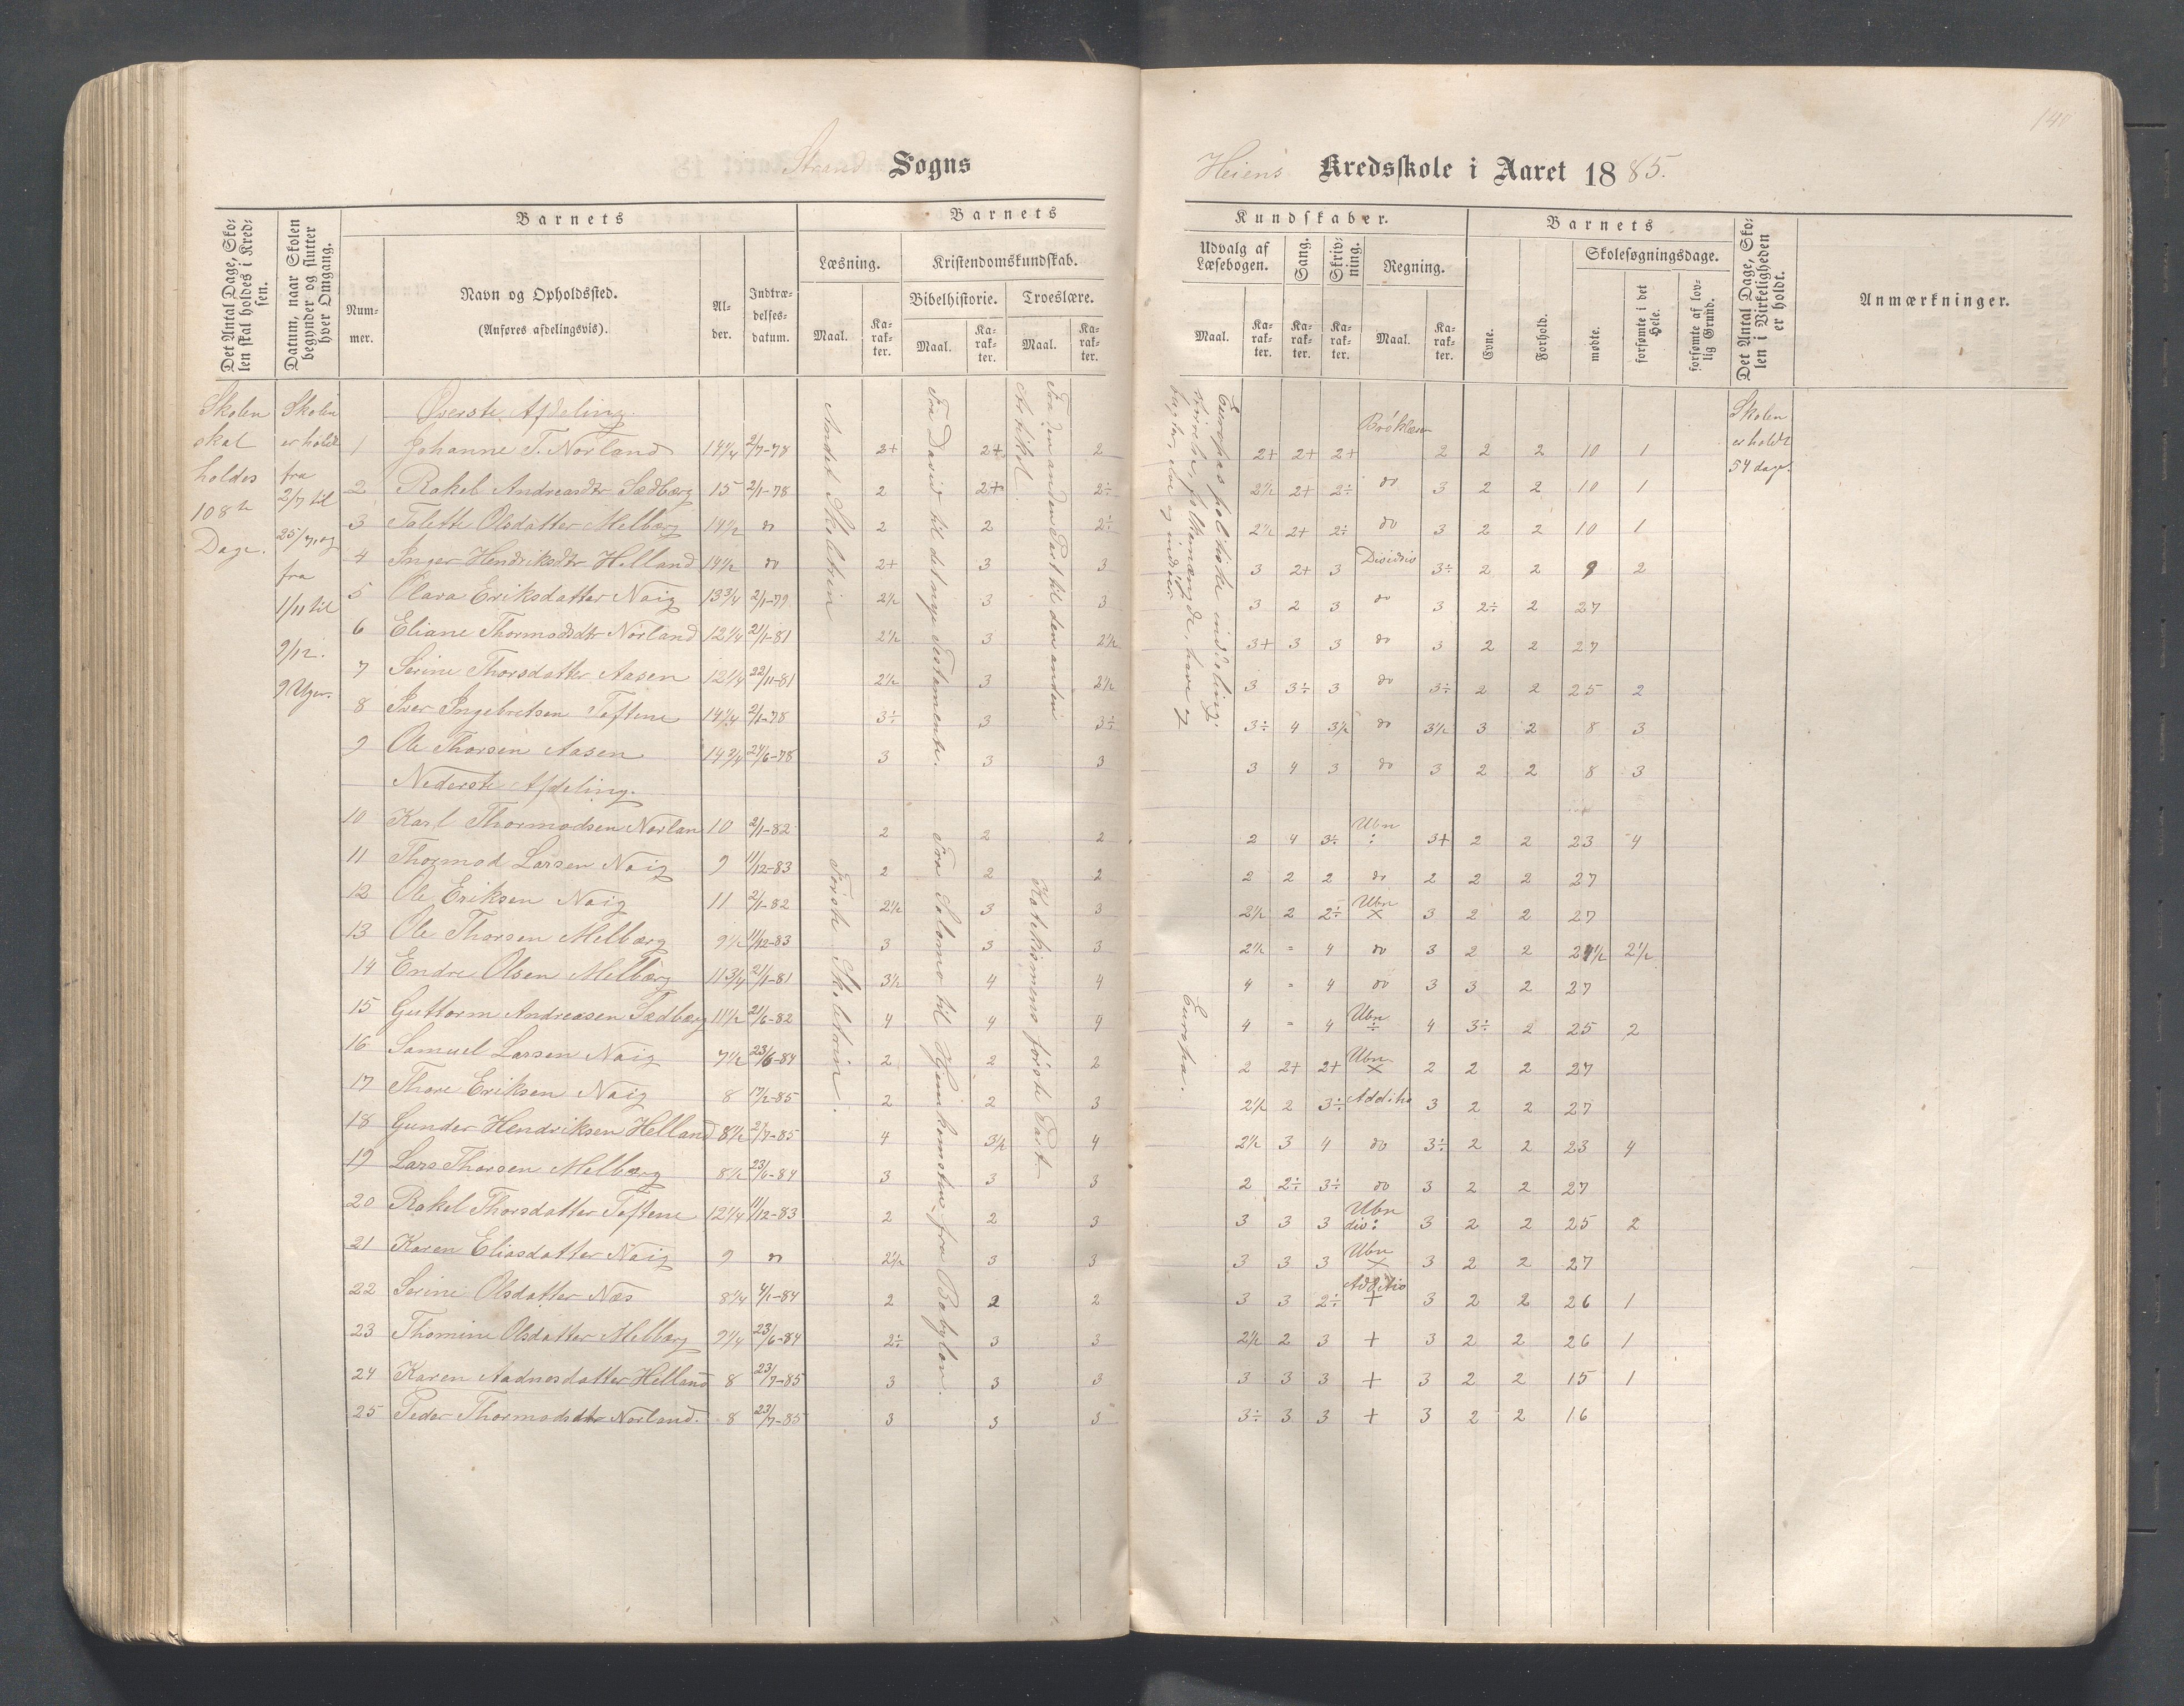 140
Strand Sogns
Heiens Kredsskole i Aaret 1885.
Det Antal Dage, Skolen skal holdes i Kredsen.
Datum, naar Skolen begynder og slutter hver Omgang.
Barnets
Nummer.
Navn og Opholdssted.
(Anføres afdelingsvis).
Alder.
Indtrædelsesdatum.
Barnets
Læsning.
Maal.
Karakter.
Kristendomskundskab.
Bibelhistorie.
Maal.
Karakter.
Troeslære.
Maal.
Karakter.
Kundskaber.
Udvalg af Læsebogen.
Maal.
Karakter.
Sang.
Karakter.
Skrivning.
Karakter.
Regning.
Maal.
Karakter.
Barnets
Evne.
Forhold.
Skolesøgningsdage.
mødte.
forsømte i det Hele.
forsømte af lovlig Grund.
Det Antal Dage, Skolen i Virkeligheden er holdt.
Anmærkninger.
Skolen skal holdes 108 Dage.
Skolen er holdt fra 2/7 til 25/7, og fra 1/11 til 9/12. 9 Uger.
Skolen er holdt 54 dage.
Andet Skoletrin
Fra David til det nye Testamente.
Fra den anden Part til den anden Artikel.
Europas politiske inddeling, størrelse, folkemængde, have og bugter, elve og indsøer
Øverste Afdeling.
1 Johanne T. Norland 14 1/4 2/7-78 2+ 2+ 2 2+ 2+ 2+ Brøklæren 2 2 2 10 1
2 Rakel Andreasdtr Sædberg 15 2/1-78 2 2+ 2÷ 2 1/2 2+ 2÷ do 3 2 2 10 1
3 Talette Olsdatter Melberg 14 1/2 do 2 2 2÷ 2 1/2 2+ 2÷ do 3 2 2 10 1
4 Inger Hendriksdtr Helland 14 1/2 do 2+ 3 3 3 2+ 3 Dividis 3÷ 2 2 9 2
5 Olava Eriksdatter Naig 13 3/4 2/1-79 2 1/2 3 3 3 2 3 do 3 2÷ 2 27
6 Eliane Thormodsdtr Norland 12 1/4 21/1-81 2 1/2 3 2 1/2 3+ 3 3 do 3 2 2 27
7 Serine Thorsdatter Aasen 12 1/4 22/11-81 2 1/2 3 2 1/2 3 3÷ 3 do 3÷ 2 2 25 2
8 Iver Ingebretsen Toftene 14 1/4 2/1-78 3÷ 3 3÷ 3÷ 4 3 1/2 do 3 1/2 3 2 8 3
9 Ole Thorsen Aasen 14 3/4 24/6-78 3 3 3 3 4 3 do 3 2 2 8 3
Nederste Afdeling.
Første Skoletrin.
Fra Salomo til Hjemkomsten fra Babylon.
Katekismens første Part
Europa.
10 Karl Thormodsen Norlan 10 2/1-82 2 2 2 2 4 3÷ Ubn : 3+ 2 2 23 4
11 Thormod Larsen Naig 9 11/12-83 2 2 2 2 2 2 do 2 2 2 27
12 Ole Eriksen Naig 11 2/1-82 2 1/2 3 3 2 1/2 2 2÷ Ubn × 3 2 2 27
13 Ole Thorsen Melberg 9 1/2 11/12-83 3 3 3 2 1/2 = 4 do 3 2 2 24 1/2 2 1/2
14 Endre Olsen Melberg 11 3/4 21/1-81 3 1/2 4 4 4 = 4 do 3 3 2 27
15 Guttorm Andreasen Sædberg 11 1/2 21/6-82 4 4 4 4 = 4 Ubn ÷ 4 3÷ 2 25 2
16 Samuel Larsen Naig 7 1/2 23/6-84 2 2 2 2 2+ 2+ Ubn × 2 2 2 27
17 Thore Eriksen Naig 8 17/2-85 2 2 3 2 1/2 2 3÷ Additio 3 2 2 27
18 Gunder Hendriksen Helland 8 1/2 2/7-85 4 3 1/2 4 2 1/2 3 4 do 3÷ 2 2 23 4
19 Lars Thorsen Melberg 8 1/2 23/6-84 3 3 3 2 2÷ 3÷ do 3 2 2 27
20 Rakel Thorsdatter Toftene 12 1/4 11/12-83 2 2 3 3 3 3 Ubn div: 3 2 2 25 2
21 Karen Eliasdatter Naig 9 do 2 1/2 3 3 3 3 3 Ubn × 3 2 2 27
22 Serine Olsdatter Næs 8 1/4 4/1-84 2 2 2 3 3 2÷ Additio + 3 2 2 26 1
23 Thomine Olsdatter Melberg 9 1/4 23/6-84 2÷ 3 3 2 1/2 2 3 + 3 2 2 26 1
24 Karen Aadnesdatter Helland 8 23/7-85 3 3 3 3 3 3 + 3 2 2 15 1
25 Peder Thormodsdtr Norland. 8 23/7-85 3 3 3 3÷ 3 3 + 3 2 2 16